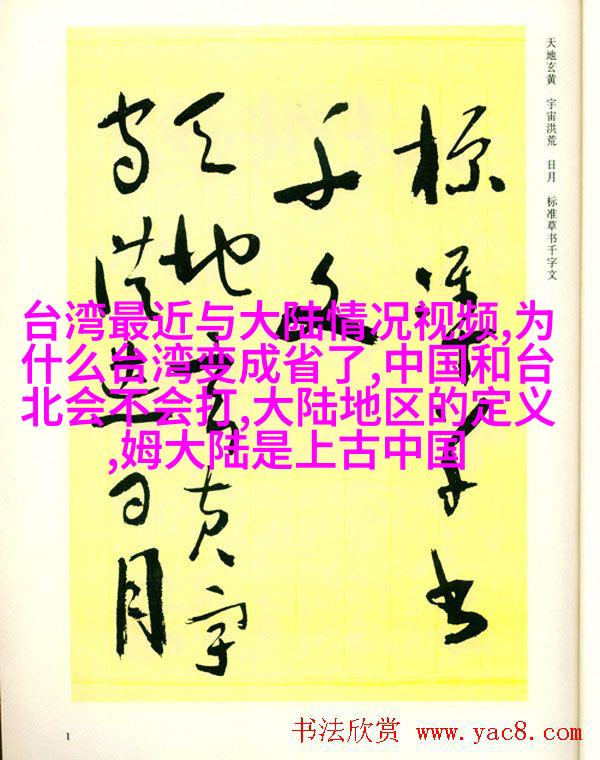 天地玄黄 宇宙洪荒 日月 标准草书千字文
标准草书
千文
天地玄黄宇
宙洪荒日月
台湾最近与大陆情况视频,为
什么台湾变成省了,中国和台
北会不会打,大陆地区的定义
,姆大陆是上古中国
1
书法欣赏 www.yac8.com